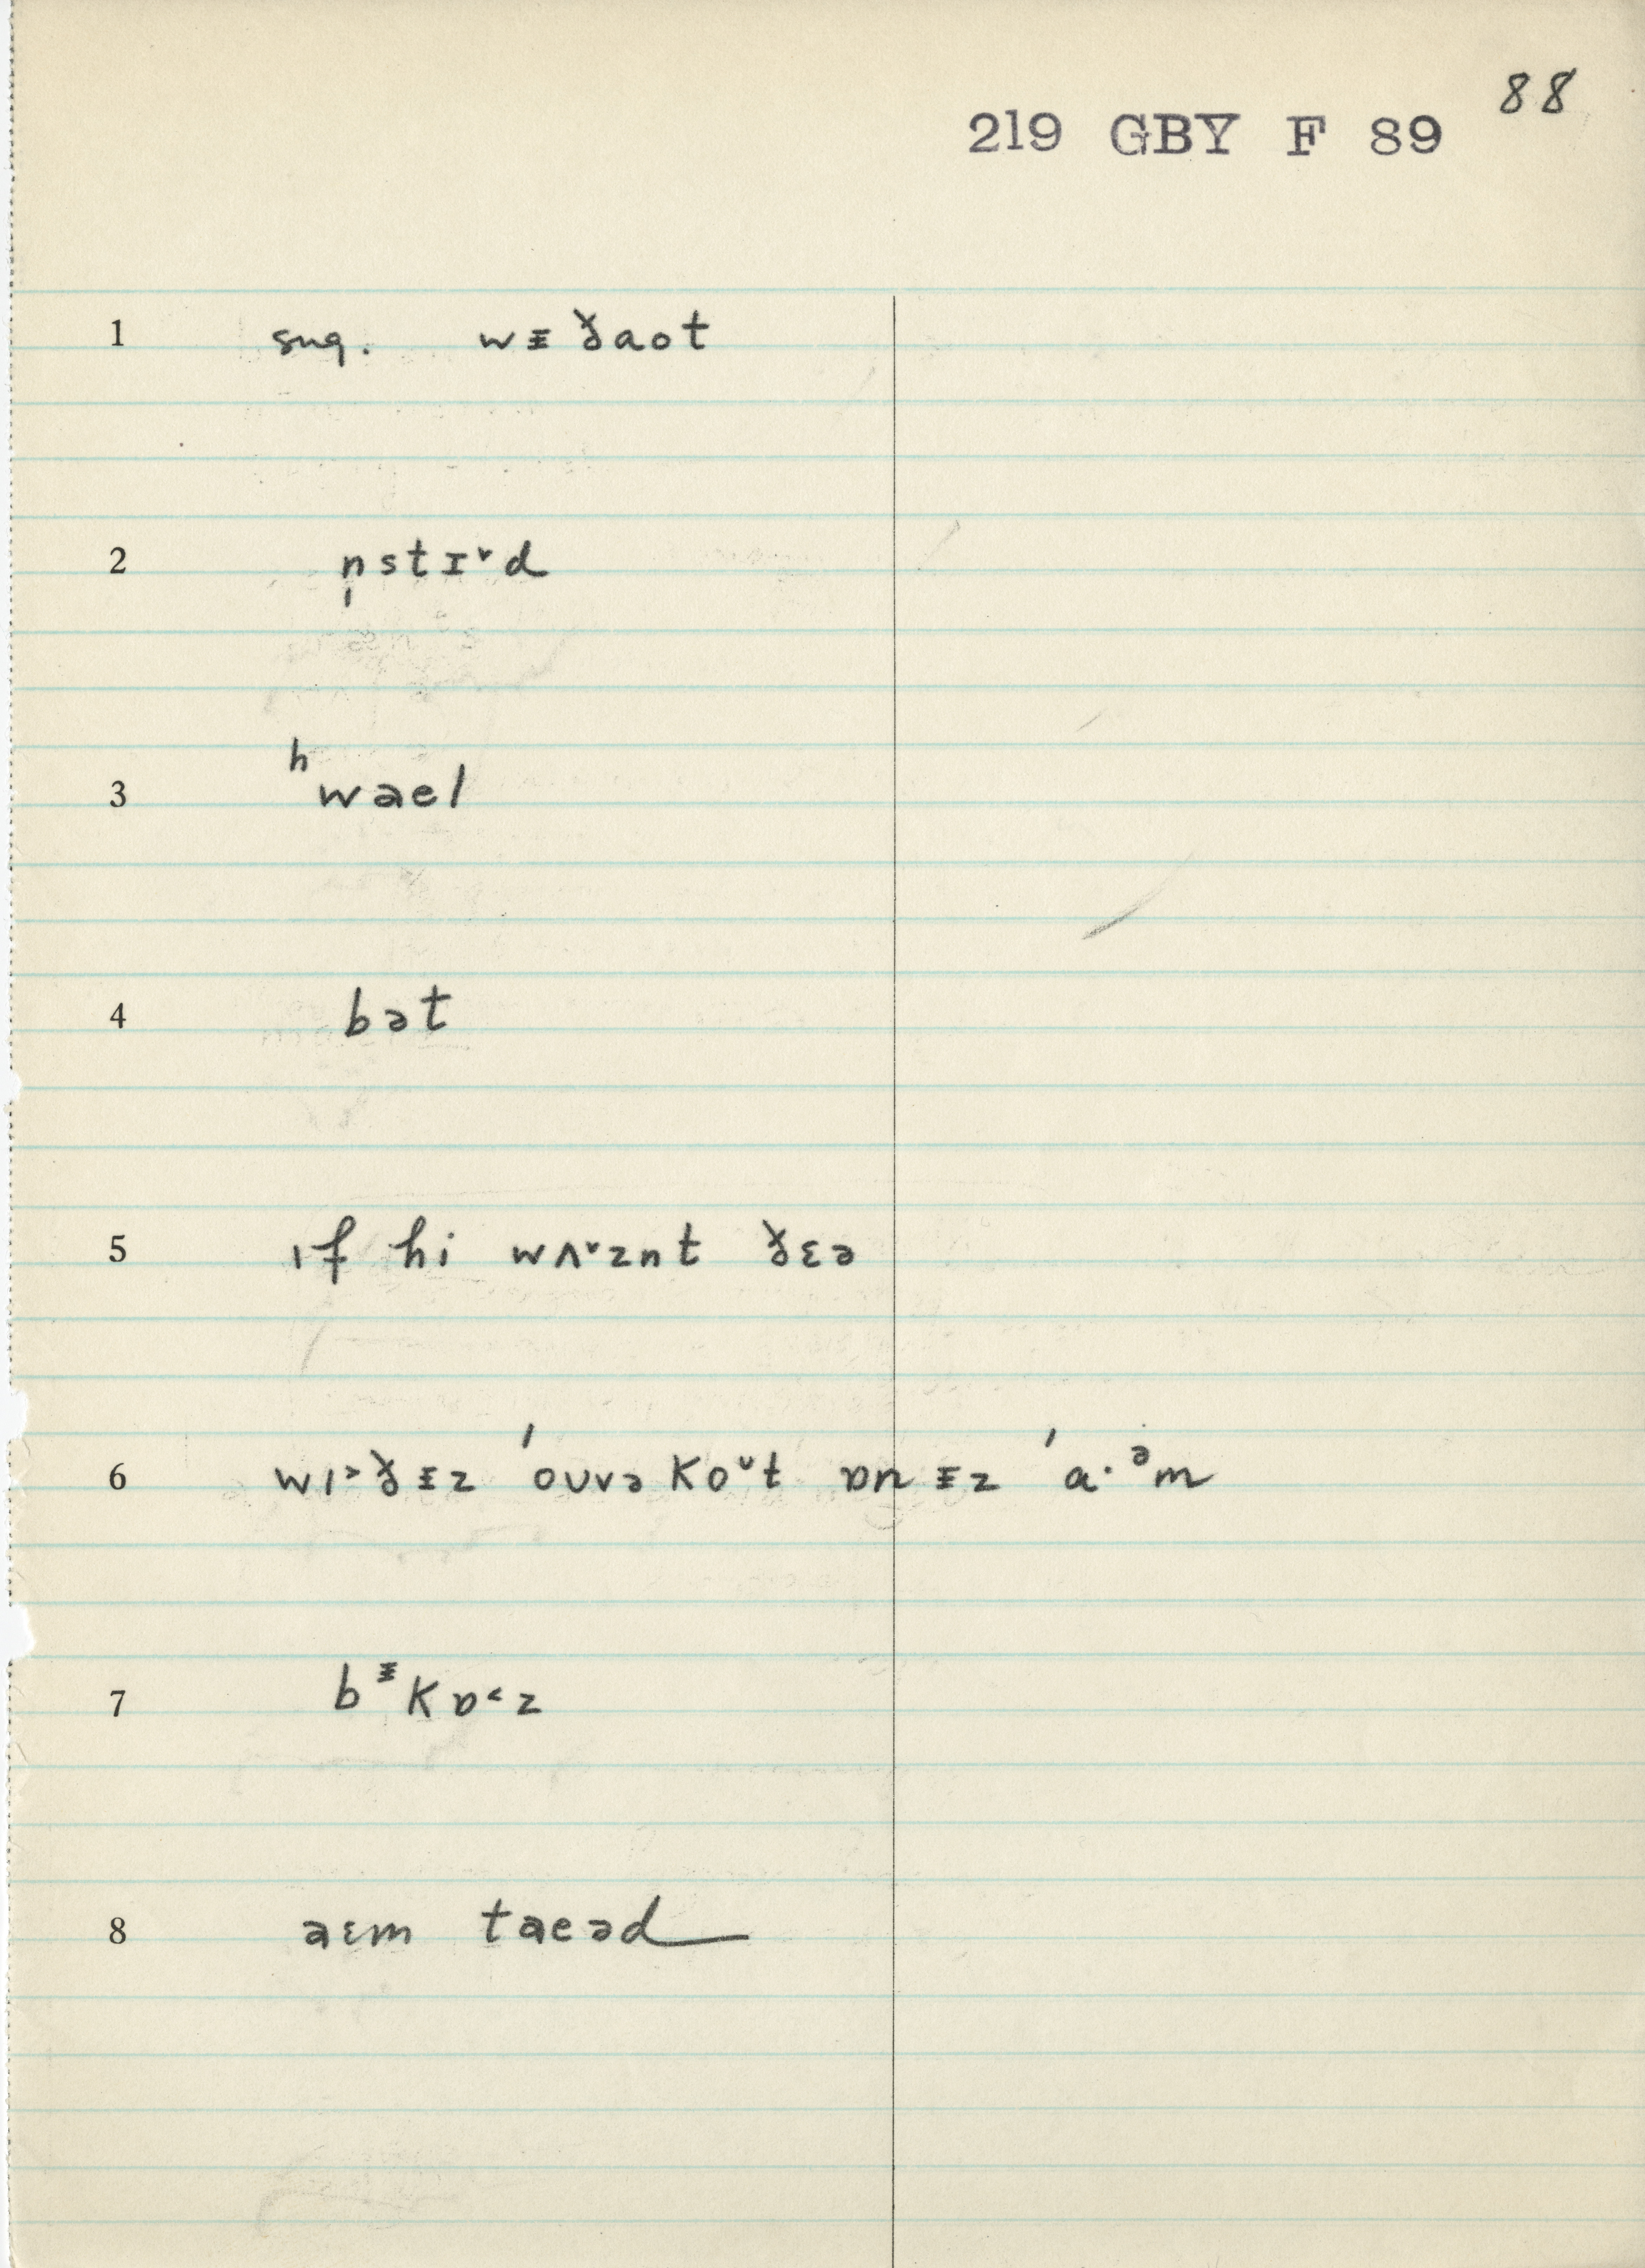 88
219 GBY F 89
1 sug. wᵻ ðaot
2 n̩stɪ˅d
3 ʰwael
4 bət
5 ɪf hi wʌ˅znt ðɛə
6 wɪ˃ðᵻz ˈoʊvə ko˅t ɒn ᵻz ˈa·ᵊm
7 bᵻkɒ˂z
8 aɛm taeəd